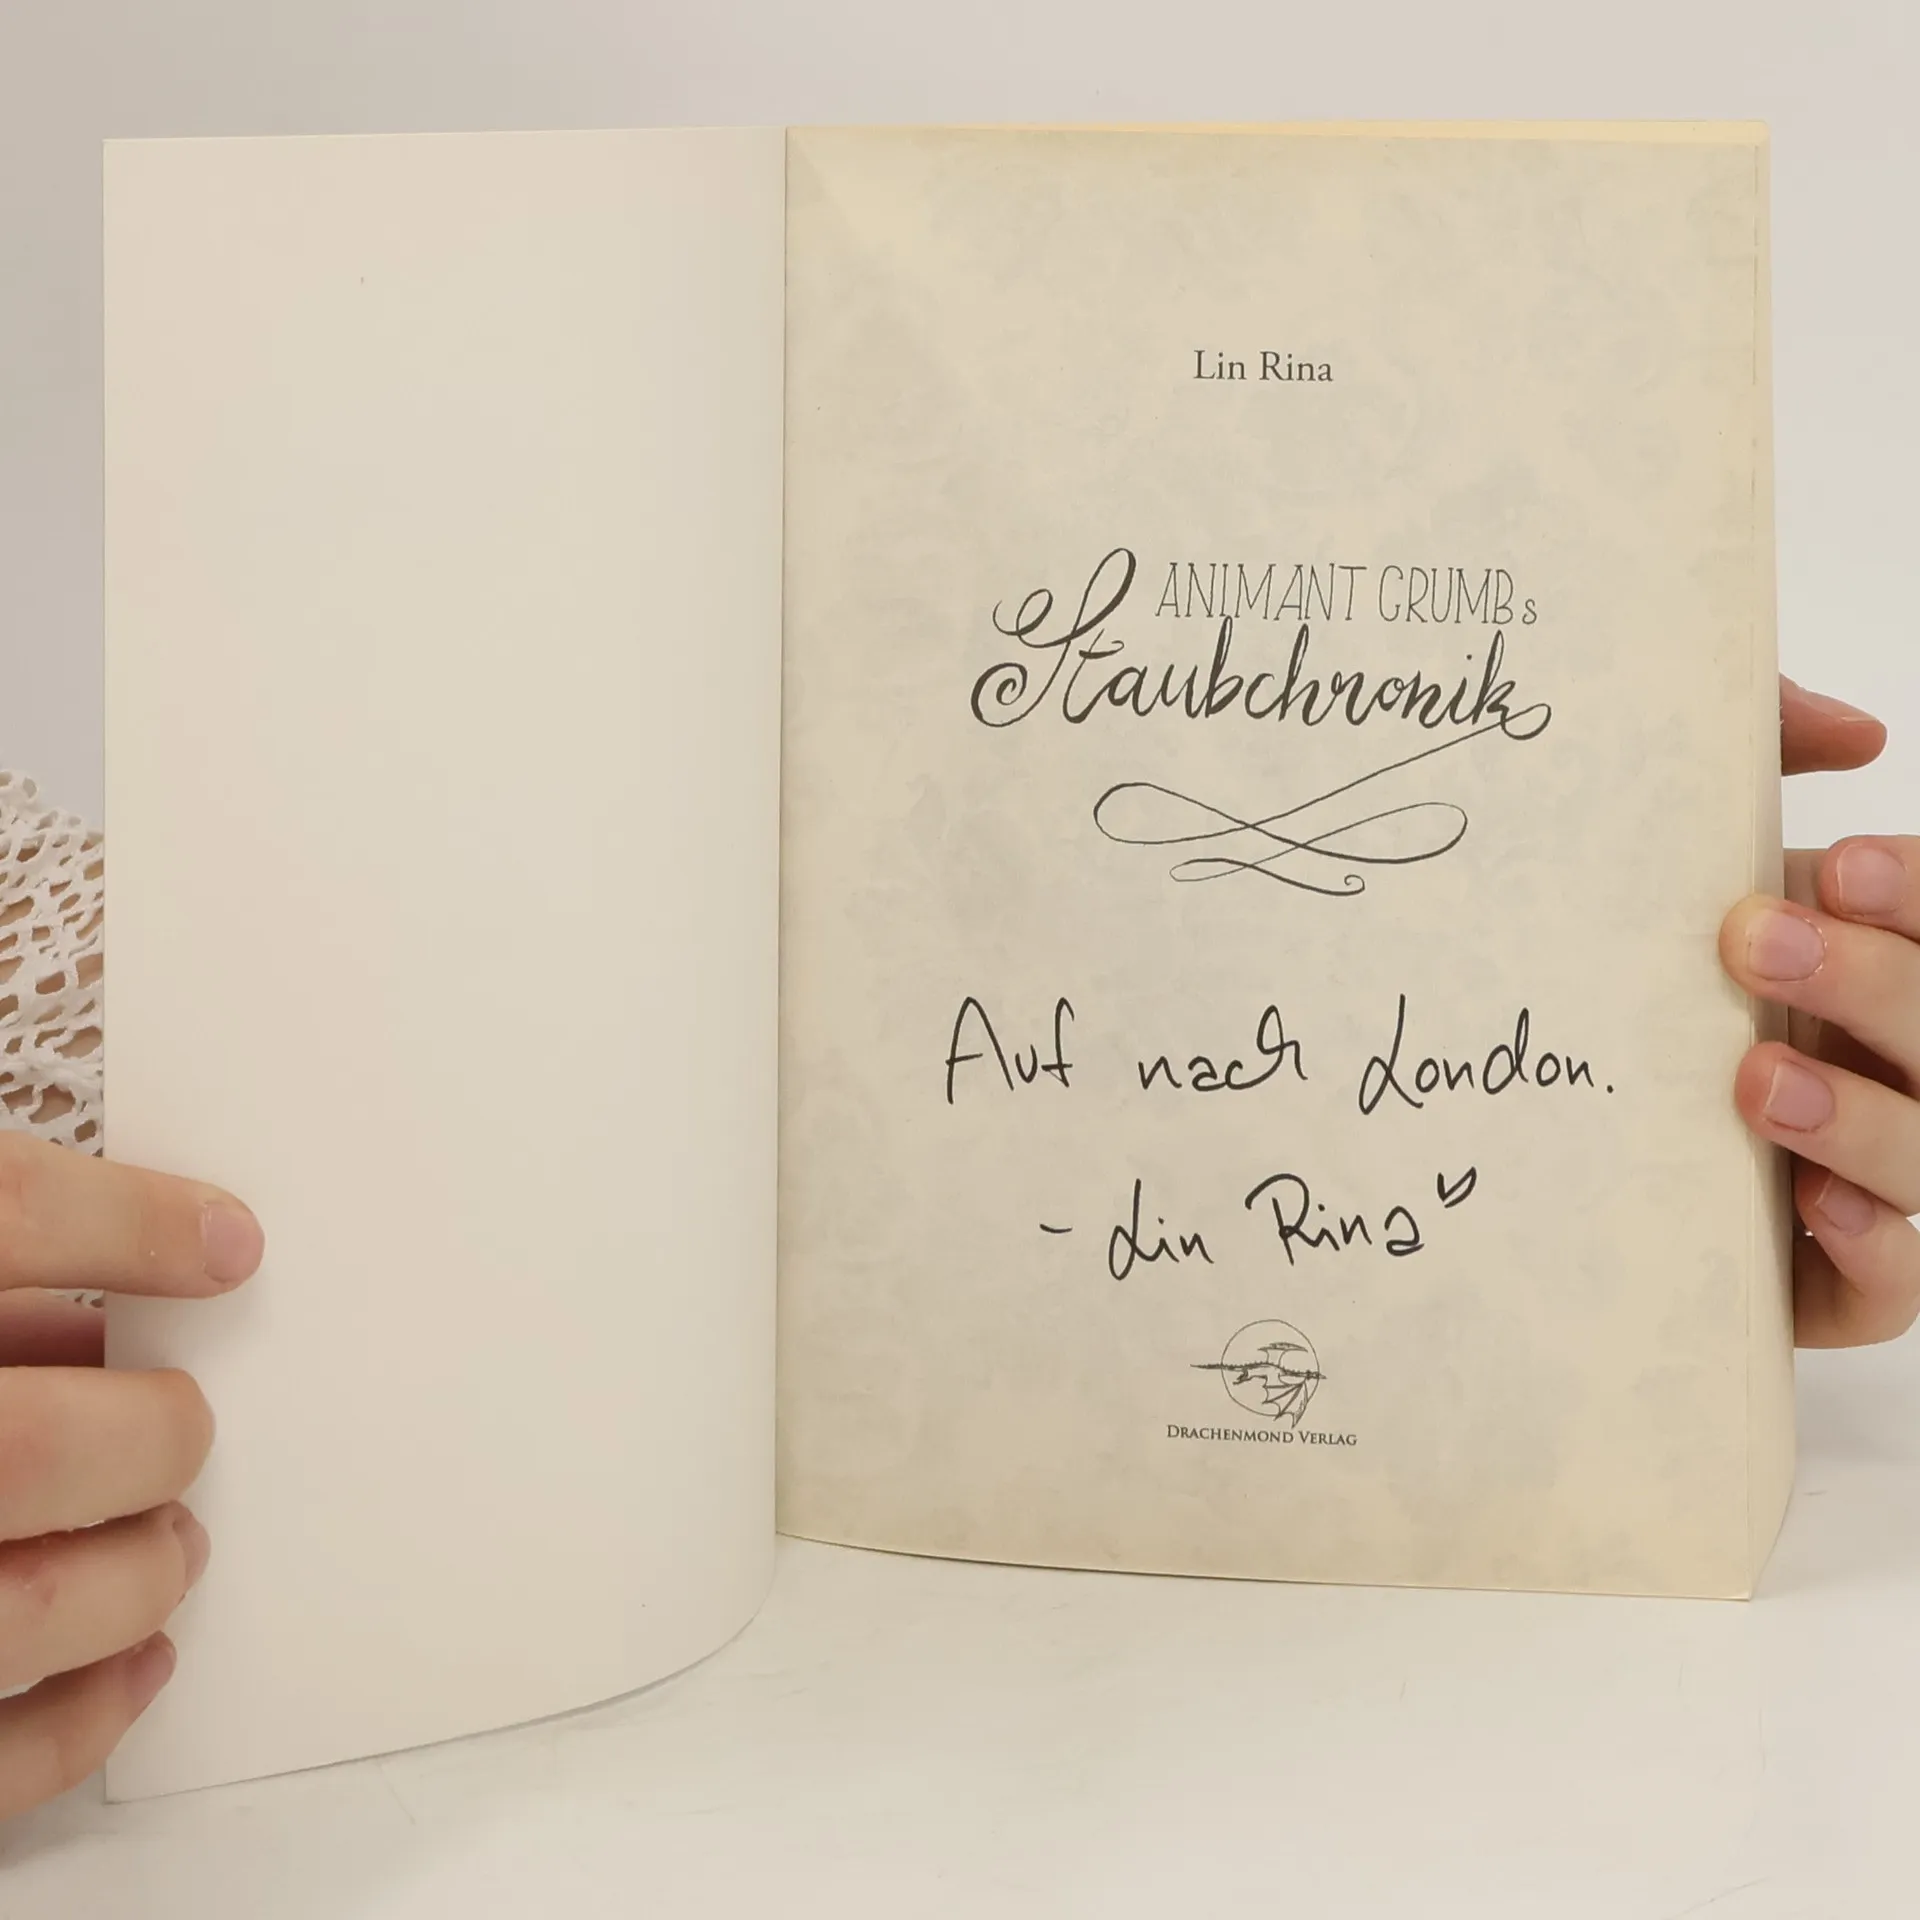 Lin Rina
ANIMANT CRUMBs
Staubchronik
Auf nach London.
- Lin Rina
DRACHENMOND VERLAG